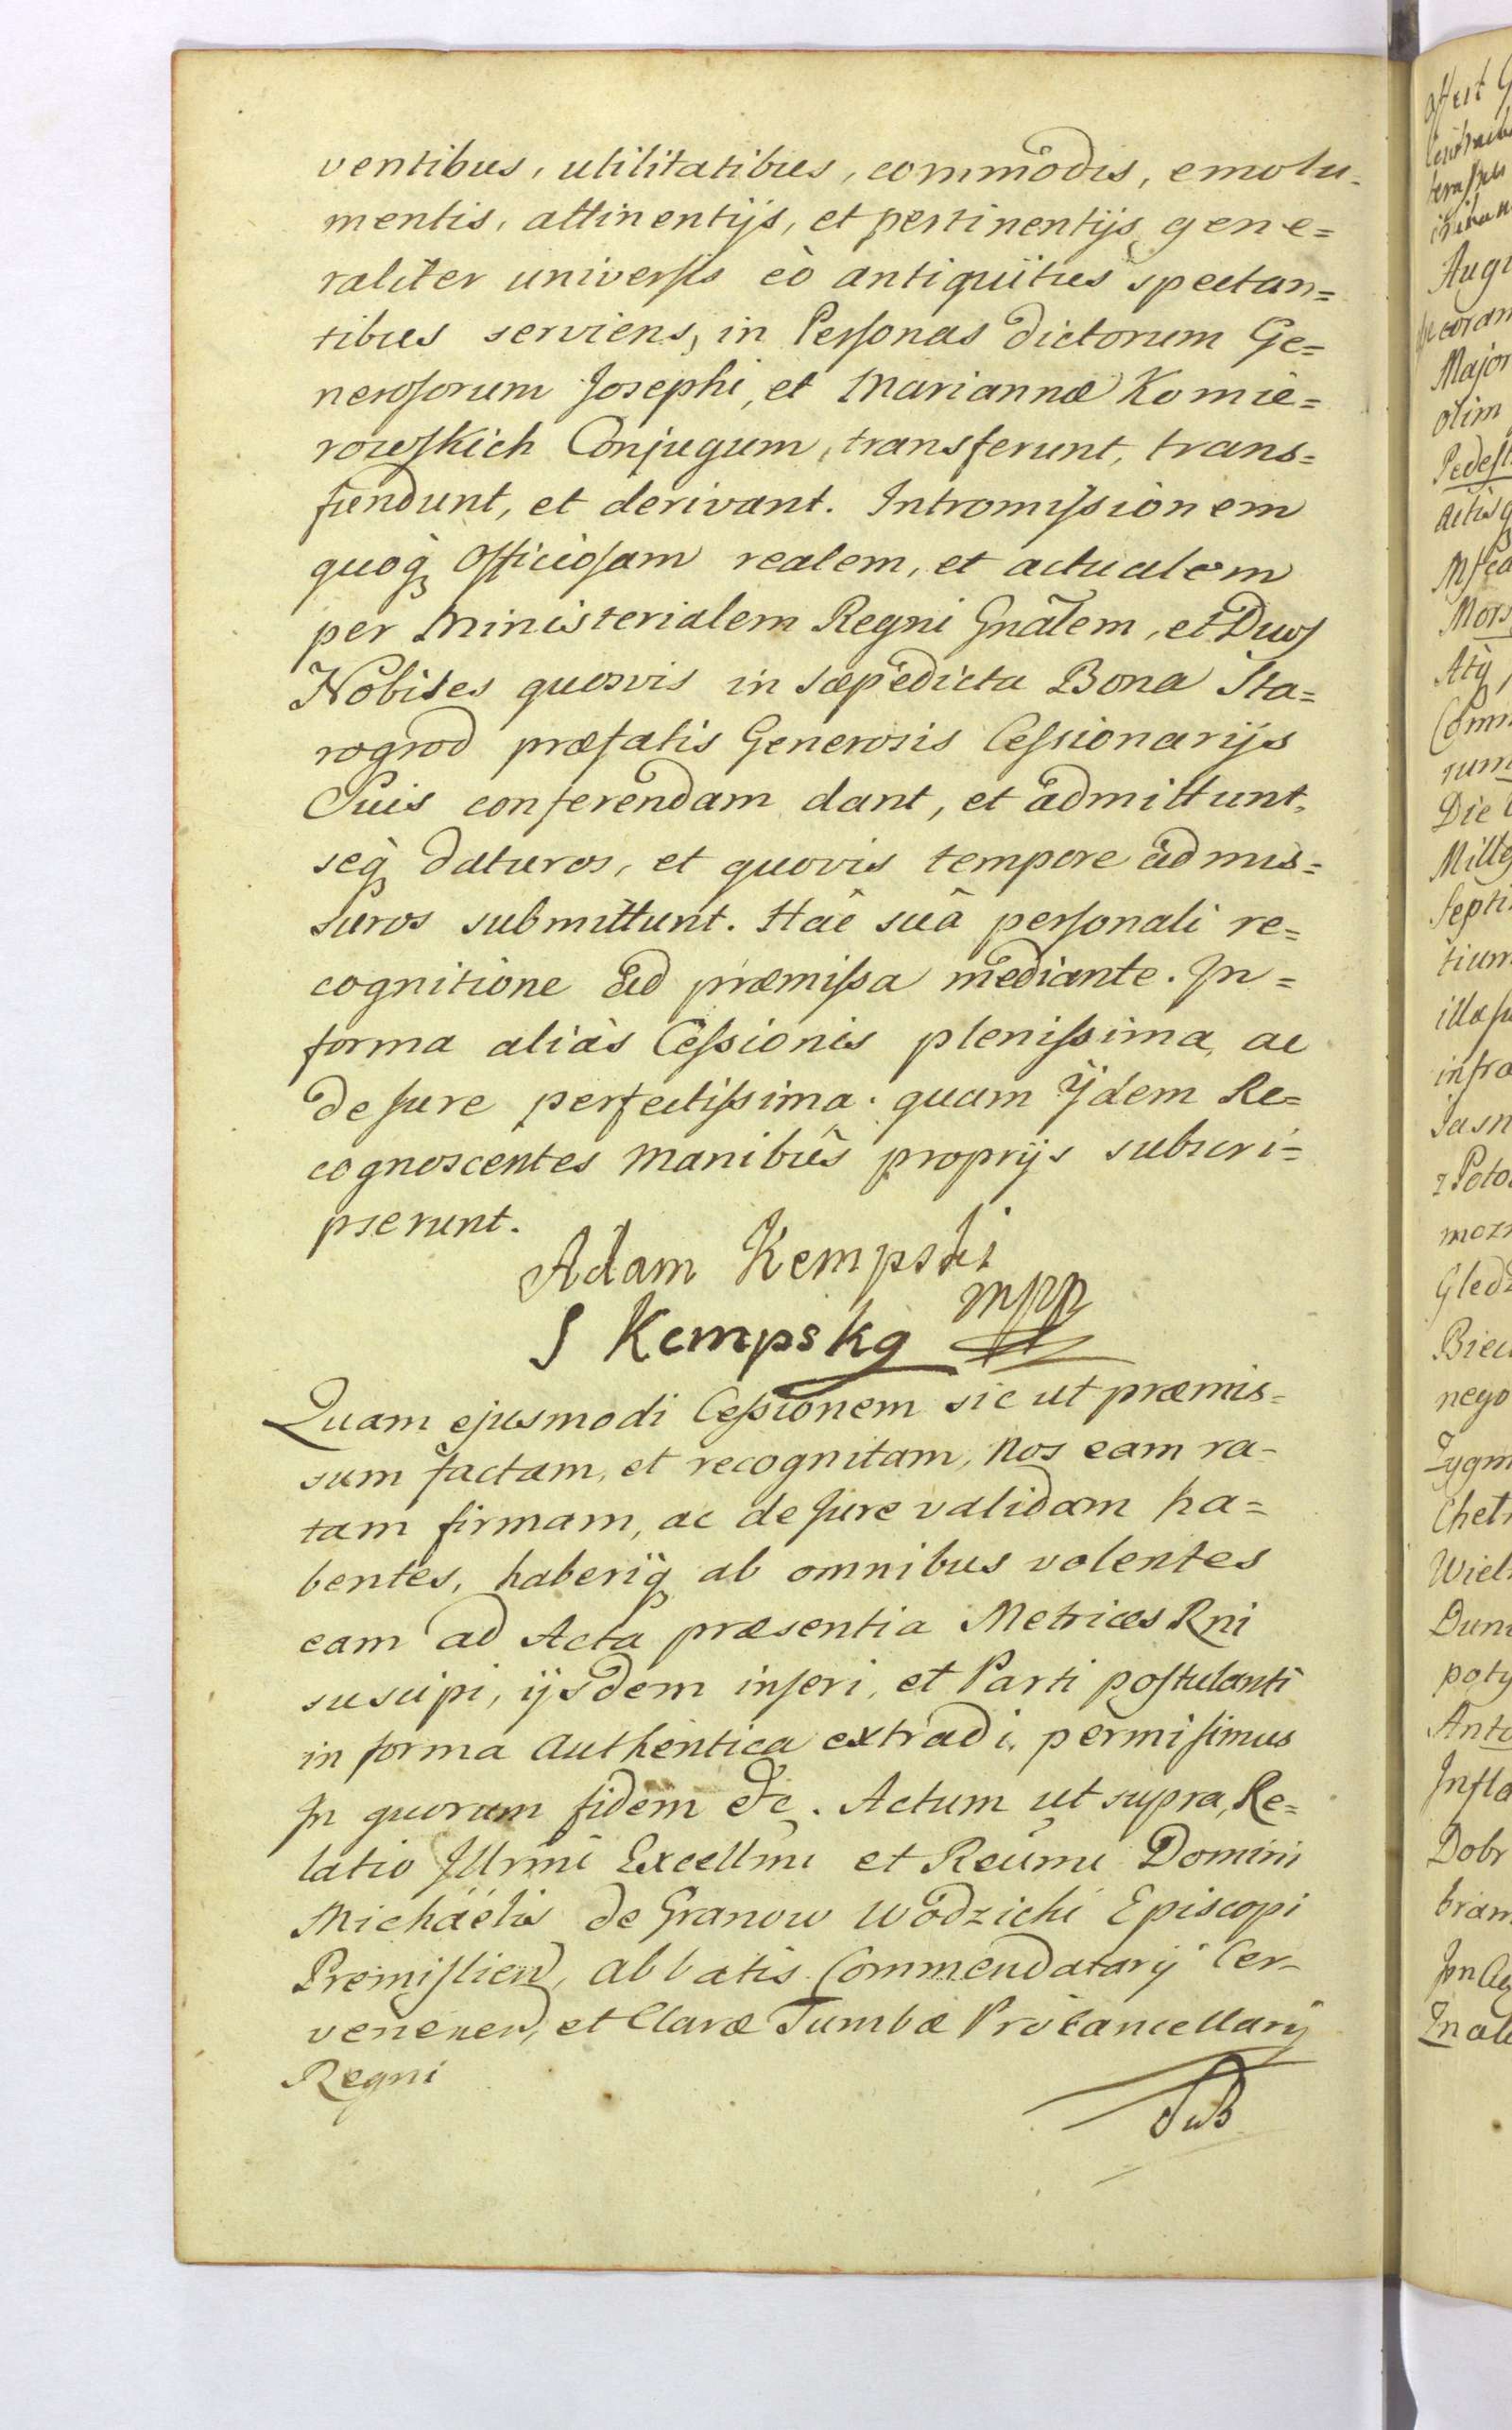 ventibus, utilitatibus, commodis, emolu-
mentis, attinentijs, et pertinentijs gene=
raliter universis eò antiquitus spectan=
tibus serviens, in Personas dictorum Ge=
nerosorum Josephi, et Mariannæ Komie=
rowskich Conjugum, transferunt, trans=
fundunt, et derivant. Intromissionem
quoq; Officiosam realem, et actualem
per Ministerialem Regni Gnãlem, et Duos
Nobiles quosvis in sæpedicta Bona Sta=
rogrod præfatis Generosis Cessionarijs
Suis conferendam dant, et admittunt,
seq; daturos, et quovis tempore admis=
suros submittunt. Hâc suâ personali re=
cognitione ad præmissa mediante. In=
forma aliàs Cessionis plenissima, ac
de Jure perfectissima. quam Ijdem Re=
cognoscentes manibus proprijs subscri=
pserunt.
Adam Kempski
mpp
S Kempska
Quam ejusmodi Cessionem sic ut præmis=
sum factam, et recognitam, Nos eam ra-
tam firmam, ac de Jure validam ha=
bentes, haberiq; ab omnibus volentes
eam ad Acta præsentia Metrices Rni
suscipi, ijsdem inseri, et Parti postulanti
in forma Authentica extradi, permisimus
In quorum fidem &c. Actum ut supra, Re=
latio Jllrmi Excellmi et Reūmi Domini
Michäelis de Granow Wodzicki Episcopi
Premislien, Abbatis Commendatarij Cer-
venen, et Claræ Tumbæ Procancellarij
Regni
August
coram
Major
olim